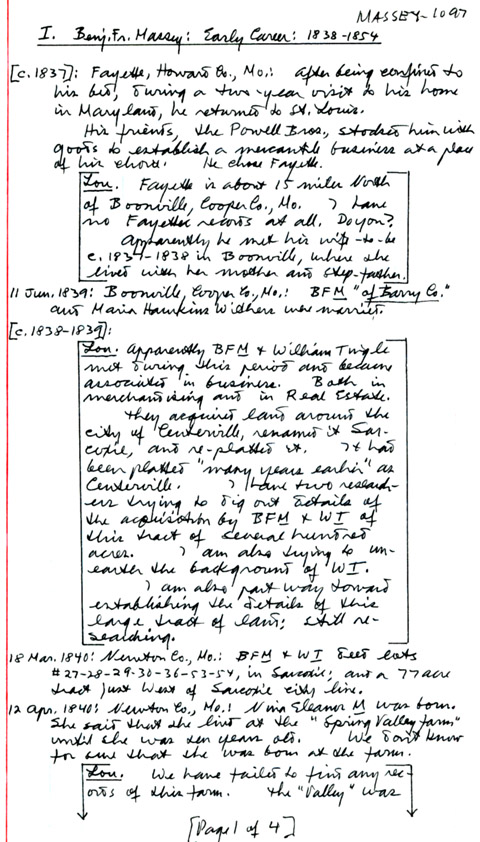 MASSEY-1097
I. Benj. Fr. Massey: Early Career: 1838-1854
[c. 1837]: Fayette, Howard Co., Mo.: After being confined to
his bed, during a two-year visit to his home
in Maryland, he returned to St. Louis.
His friends, the Powell Bros., stocked him with
goods to establish a mercantile business at a place
of his choice. He chose Fayette.
Lou. Fayette is about 15 miles North
of Boonville, Cooper Co., Mo. I have
no Fayette records at all. Do you?
Apparently he met his wife-to-be
c. 1837-1838 in Boonville, where she
lived with her mother and step-father.
11 Jun. 1839: Boonville, Cooper Co., Mo.: BFM "of Barry Co."
and Maria Hawkins Withers were married.
[c. 1838-1839]:
Lou. Apparently BFM & William Tingle
met during this period and became
associated in business. Both in
merchandising and in Real Estate.
They acquired land around the
city of Centerville, renamed it Sar-
coxie, and re-platted it. It had
been platted "many years earlier" as
Centerville. I have two research-
ers trying to dig out details of
the acquisition by BFM & WT of
this tract of several hundred
acres. I am also trying to un-
earth the background of WT.
I am also part way toward
establishing the details of this
large tract of land; still re-
searching.
18 Mar. 1840: Newton Co., Mo.: BFM & WT deed lots
#27-28-29-30-36-53-54, in Sarcoxie; and a 77 acre
tract just West of Sarcoxie city line.
12 Apr. 1840: Newton Co., Mo.: Nina Eleanor M was born.
She said that she lived at the "Spring Valley farm"
until she was ten years old. We don't know
for sure that she was born at the farm.
Lou. We have failed to find any rec-
ords of this farm. The "Valley" was
[Page 1 of 4]